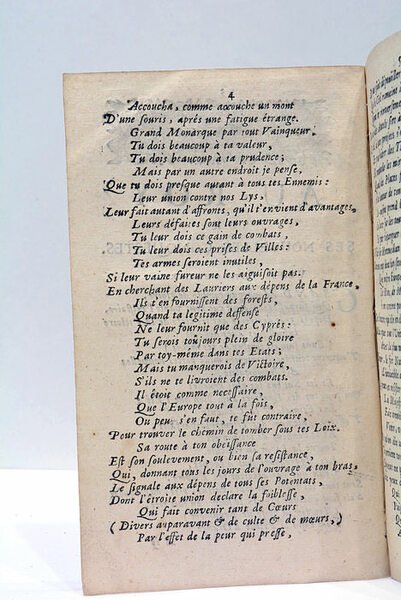 4
Accoucha, comme accouche un mont
D'une souris, aprés une fatigue étrange.
Grand Monarque par tout Vainqueur,
Tu dois beaucoup à ta valeur,
Tu dois beaucoup à ta prudence;
Mais par un autre endroit je pense,
Que tu dois presque autant à tous tes Ennemis:
Leur union contre nos Lys,
Leur fait autant d'affronts, qu'il t'en vient d'avantages,
Leurs défaites sont leurs ouvrages,
Tu leur dois ce gain de combats,
Tu leur dois ces prises de Villes:
Tes armes seroient inutiles,
Si leur vaine fureur ne les aiguisoit pas.
En cherchant des Lauriers aux dépens de la France,
Ils t'en fournissent des forests,
Quand ta legitime deffense
Ne leur fournit que des Cyprès:
Tu serois toûjours plein de gloire
Par toy-même dans tes Etats;
Mais tu manquerois de Victoire,
S'ils ne te livroient des combats.
Il étoit comme necessaire,
Que l'Europe tout à la fois,
Ou peu s'en faut, te fût contraire,
Pour trouver le chemin de tomber sous tes Loix.
Sa route à ton obéïssance
Est son soulevement, ou bien sa resistance,
Qui, donnant tous les jours de l'ouvrage à ton bras,
Le signale aux dépens de tous ses Potentats,
Dont l'étroite union declare la foiblesse,
Qui fait convenir tant de Cœurs
(Divers auparavant & de culte & de mœurs,)
Par l'effet de la peur qui presse,